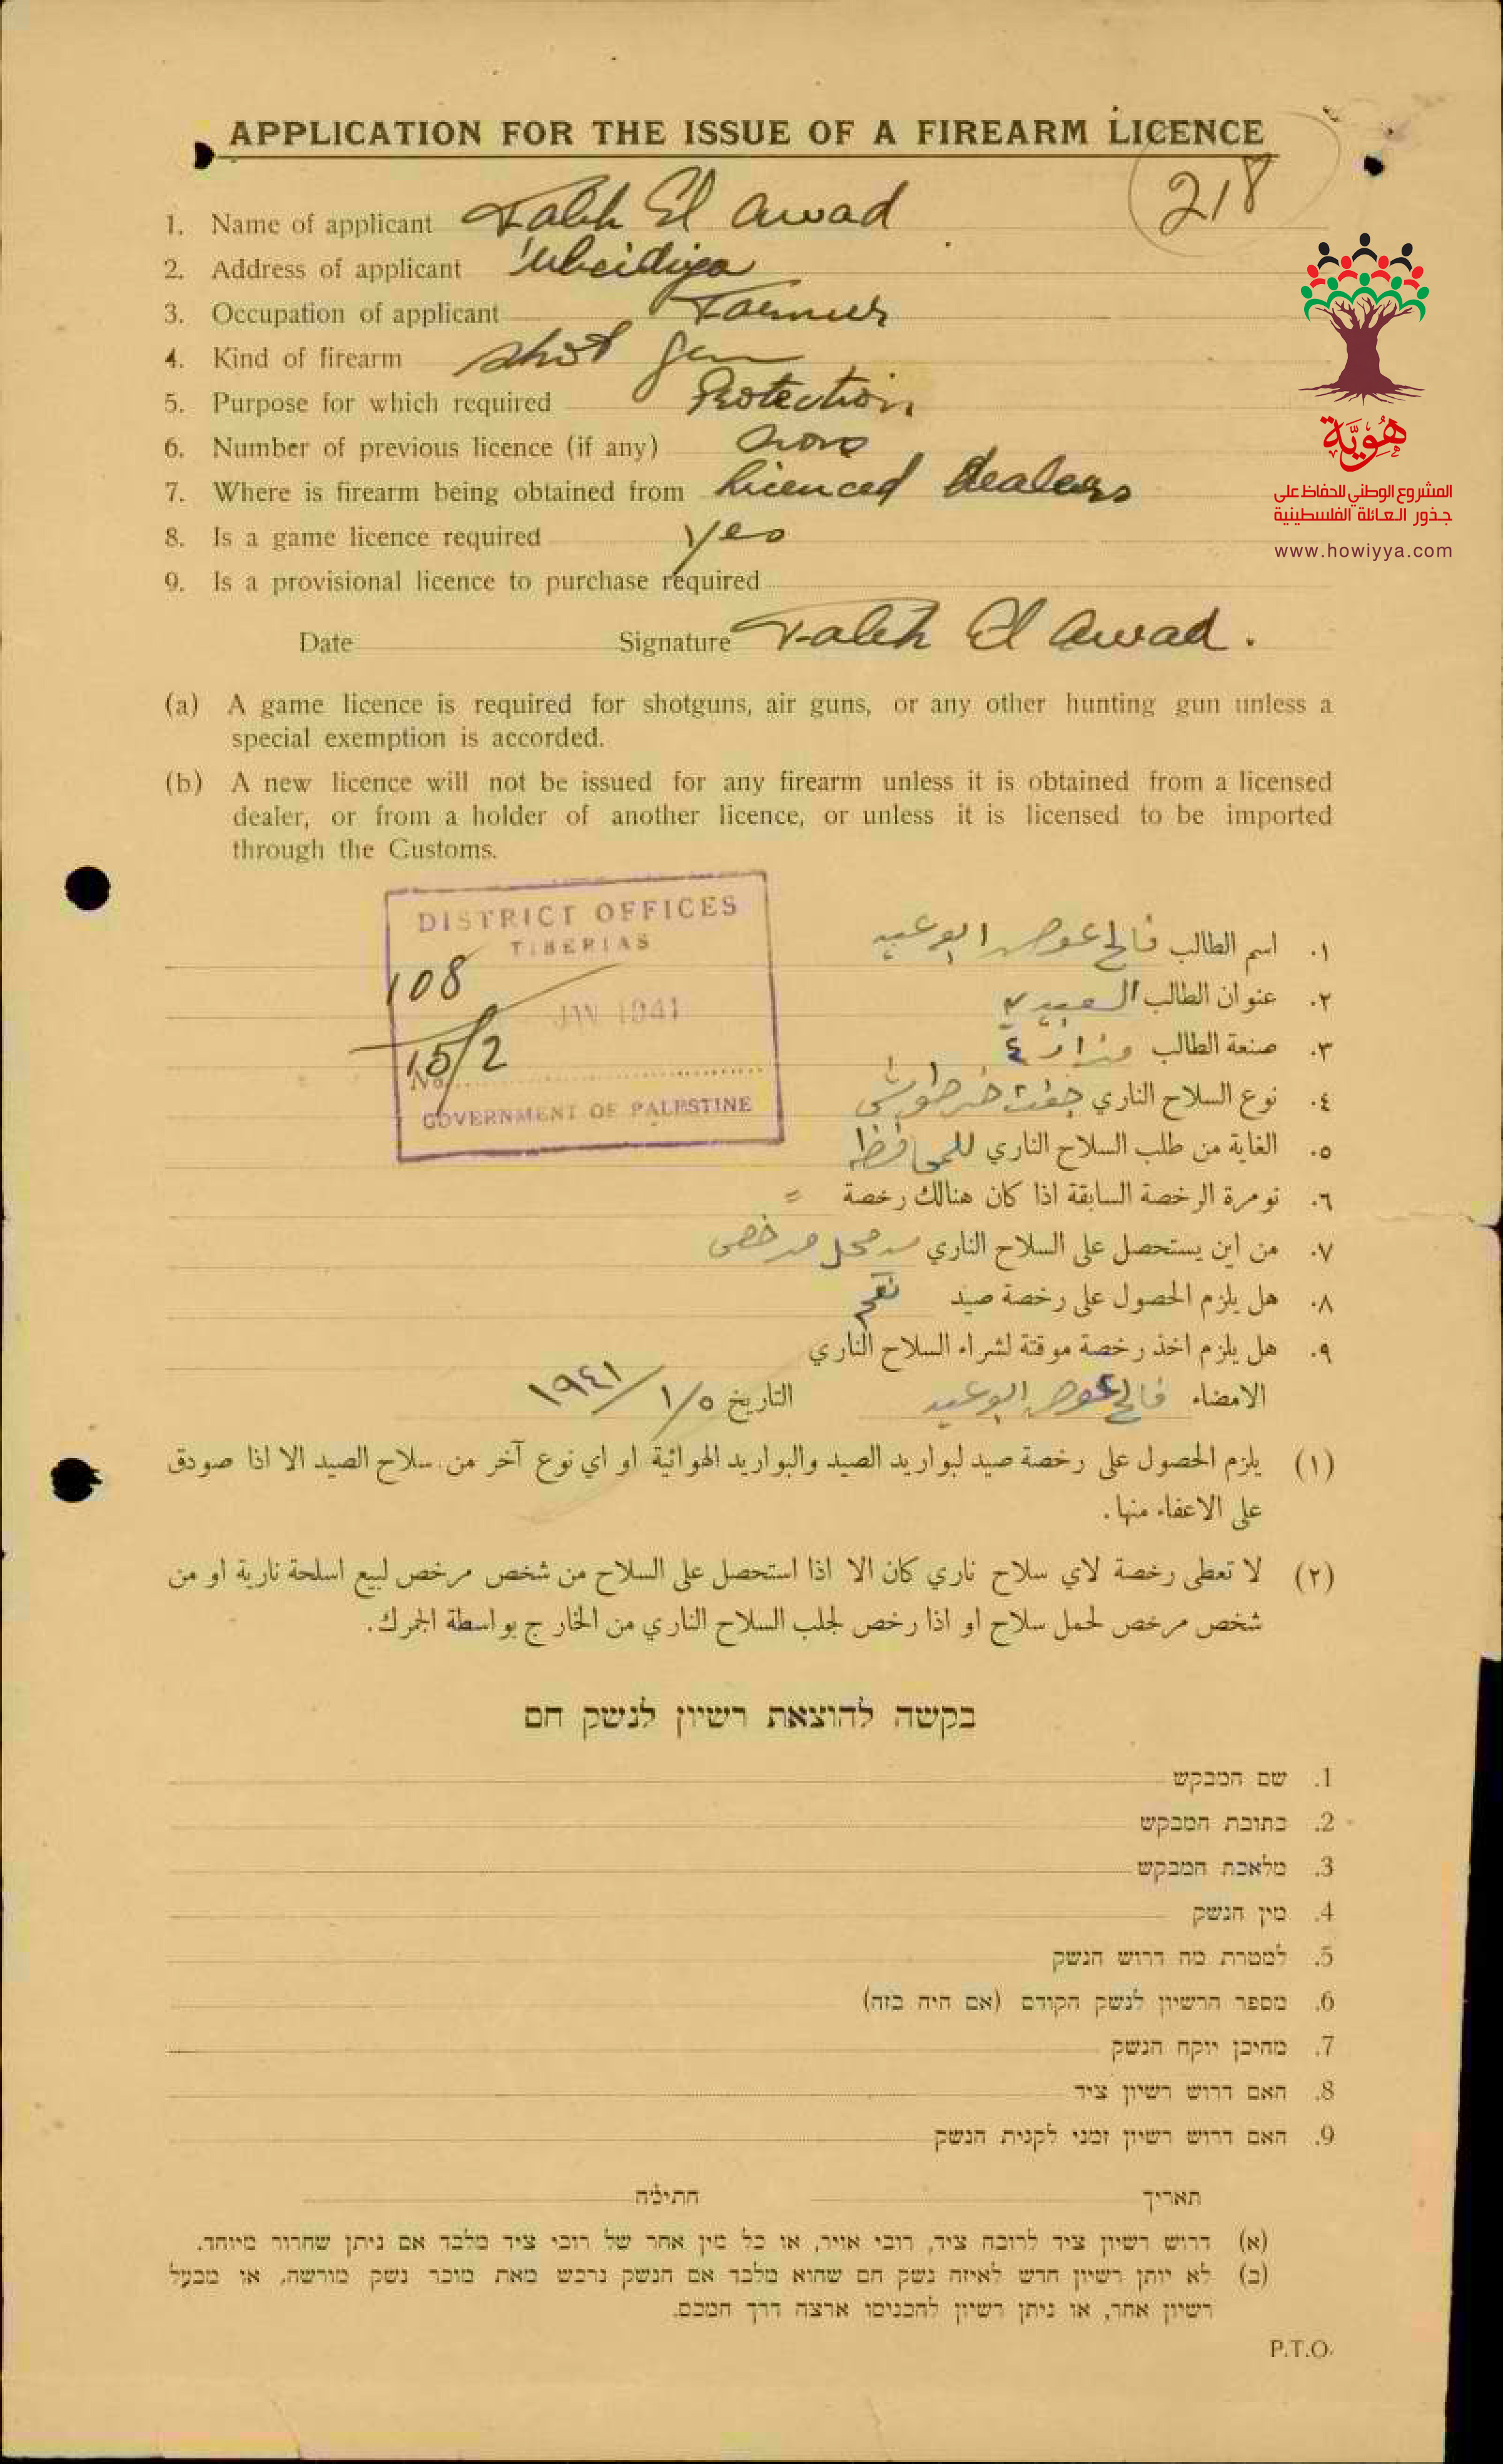 APPLICATION FOR THE ISSUE OF A FIREARM LICENCE
218
1. Name of applicant Faleh El Awad
2. Address of applicant 'Ubeidiya
3. Occupation of applicant Farmer
4. Kind of firearm shot gun
5. Purpose for which required Protection
6. Number of previous licence (if any) none
7. Where is firearm being obtained from licenced dealers
8. Is a game licence required yes
9. Is a provisional licence to purchase required
Date Signature Faleh El Awad.
هُويَّة
المشروع الوطني للحفاظ على
جذور العائلة الفلسطينية
www.howiyya.com
(a) A game licence is required for shotguns, air guns, or any other hunting gun unless a
special exemption is accorded.
(b) A new licence will not be issued for any firearm unless it is obtained from a licensed
dealer, or from a holder of another licence, or unless it is licensed to be imported
through the Customs.
DISTRICT OFFICES
TIBERIAS
108
JAN 1941
15/2
No.
GOVERNMENT OF PALESTINE
١. اسم الطالب فالح عوض ابو عبيد
٢. عنوان الطالب العبيدية
٣. صنعة الطالب مزارع
٤. نوع السلاح الناري جفت خرطوش
٥. الغاية من طلب السلاح الناري للمحافظة
٦. نومرة الرخصة السابقة اذا كان هنالك رخصة =
٧. من اين يستحصل على السلاح الناري من محل مرخص
٨. هل يلزم الحصول على رخصة صيد نعم
٩. هل يلزم اخذ رخصة موقتة لشراء السلاح الناري
الامضاء فالح عوض ابو عبيد التاريخ ١/٥/١٩٤١
(١) يلزم الحصول على رخصة صيد لبواريد الصيد والبواريد الهوائية او اي نوع آخر من سلاح الصيد الا اذا صودق
على الاعفاء منها.
(٢) لا تعطى رخصة لاي سلاح ناري كان الا اذا استحصل على السلاح من شخص مرخص لبيع اسلحة نارية او من
شخص مرخص لحمل سلاح او اذا رخص لجلب السلاح الناري من الخارج بواسطة الجمرك.
בקשה להוצאת רשיון לנשק חם
1. שם המבקש
2. כתובת המבקש
3. מלאכת המבקש
4. מין הנשק
5. למטרת מה דרוש הנשק
6. מספר הרשיון לנשק הקודם (אם היה כזה)
7. מהיכן יוקח הנשק
8. האם דרוש רשיון ציד
9. האם דרוש רשיון זמני לקנית הנשק
תאריך חתימה
(א) דרוש רשיון ציד לרובה ציד, רובי אויר, או כל מין אחר של רובי ציד מלבד אם ניתן שחרור מיוחד.
(ב) לא יותן רשיון חדש לאיזה נשק חם שהוא מלבד אם הנשק נרכש מאת מוכר נשק מורשה, או מבעל
רשיון אחר, או ניתן רשיון להכניסו ארצה דרך המכס.
P.T.O.